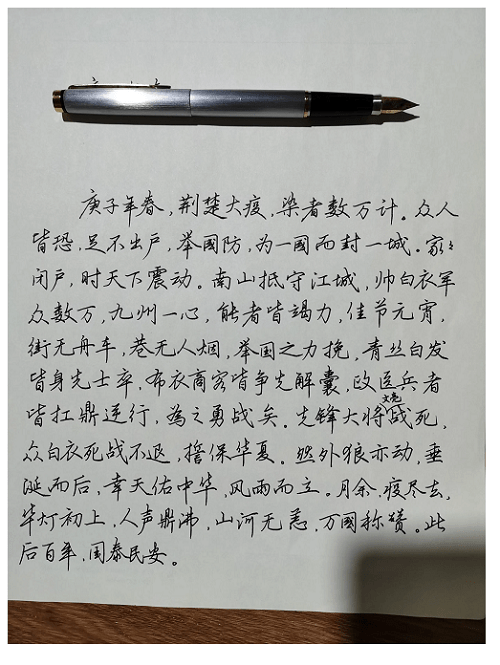 庚子年春，荆楚大疫，染者数万计。众人
皆恐，足不出户，举國防，为一國而封一城。家々
闭户，时天下震动。南山抵守江城，帅白衣军
众数万，九州一心，能者皆竭力，佳节元宵，
街无舟车，巷无人烟，举国之力挽，青丝白发
皆身先士卒，布衣商客皆争先解囊，政医兵者
皆扛鼎逆行，為之勇战矣。先锋大将战死，
众白衣死战不退，擔保华夏。然外狼亦动，垂
涎而后，幸天佑中华，风雨而立。月余，疫尽去，
华灯初上，人声鼎沸，山河无恙，万國称赞。此
后百年，国泰民安。